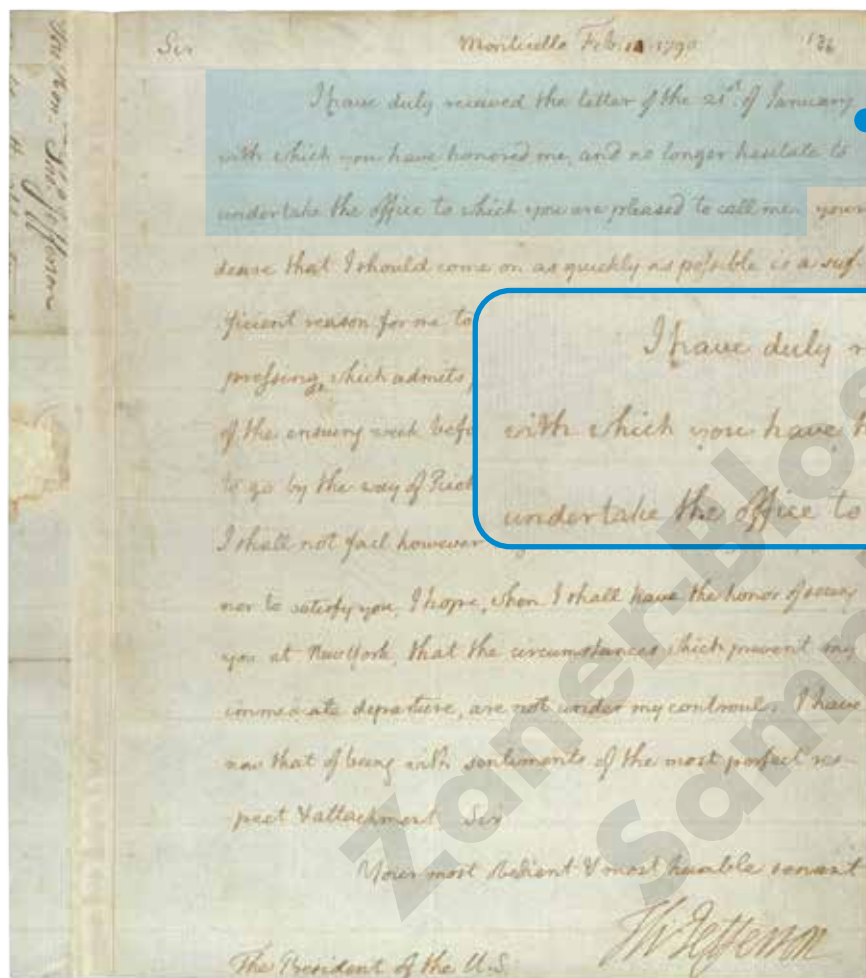 Sir Monticello Feb. 14. 1790. 126
I have duly received the letter of the 21st. of January
with which you have honored me, and no longer hesitate to
undertake the office to which you are pleased to call me. your
desire that I should come on as quickly as possible is a suf-
ficient reason for me to
pressing, which admits,
of the ensuing week befo
to go by the way of Rich
I shall not fail however
nor to satisfy you, I hope, when I shall have the honor of seeing
you at New York, that the circumstances which prevent my
immediate departure, are not under my controul. I have
now that of being with sentiments of the most perfect res-
pect & attachment, Sir
Your most obedient & most humble servant
Th: Jefferson
The President of the U.S.
I have duly r
with which you have h
undertake the office to
Jefferson
Zaner-Blos
Samp